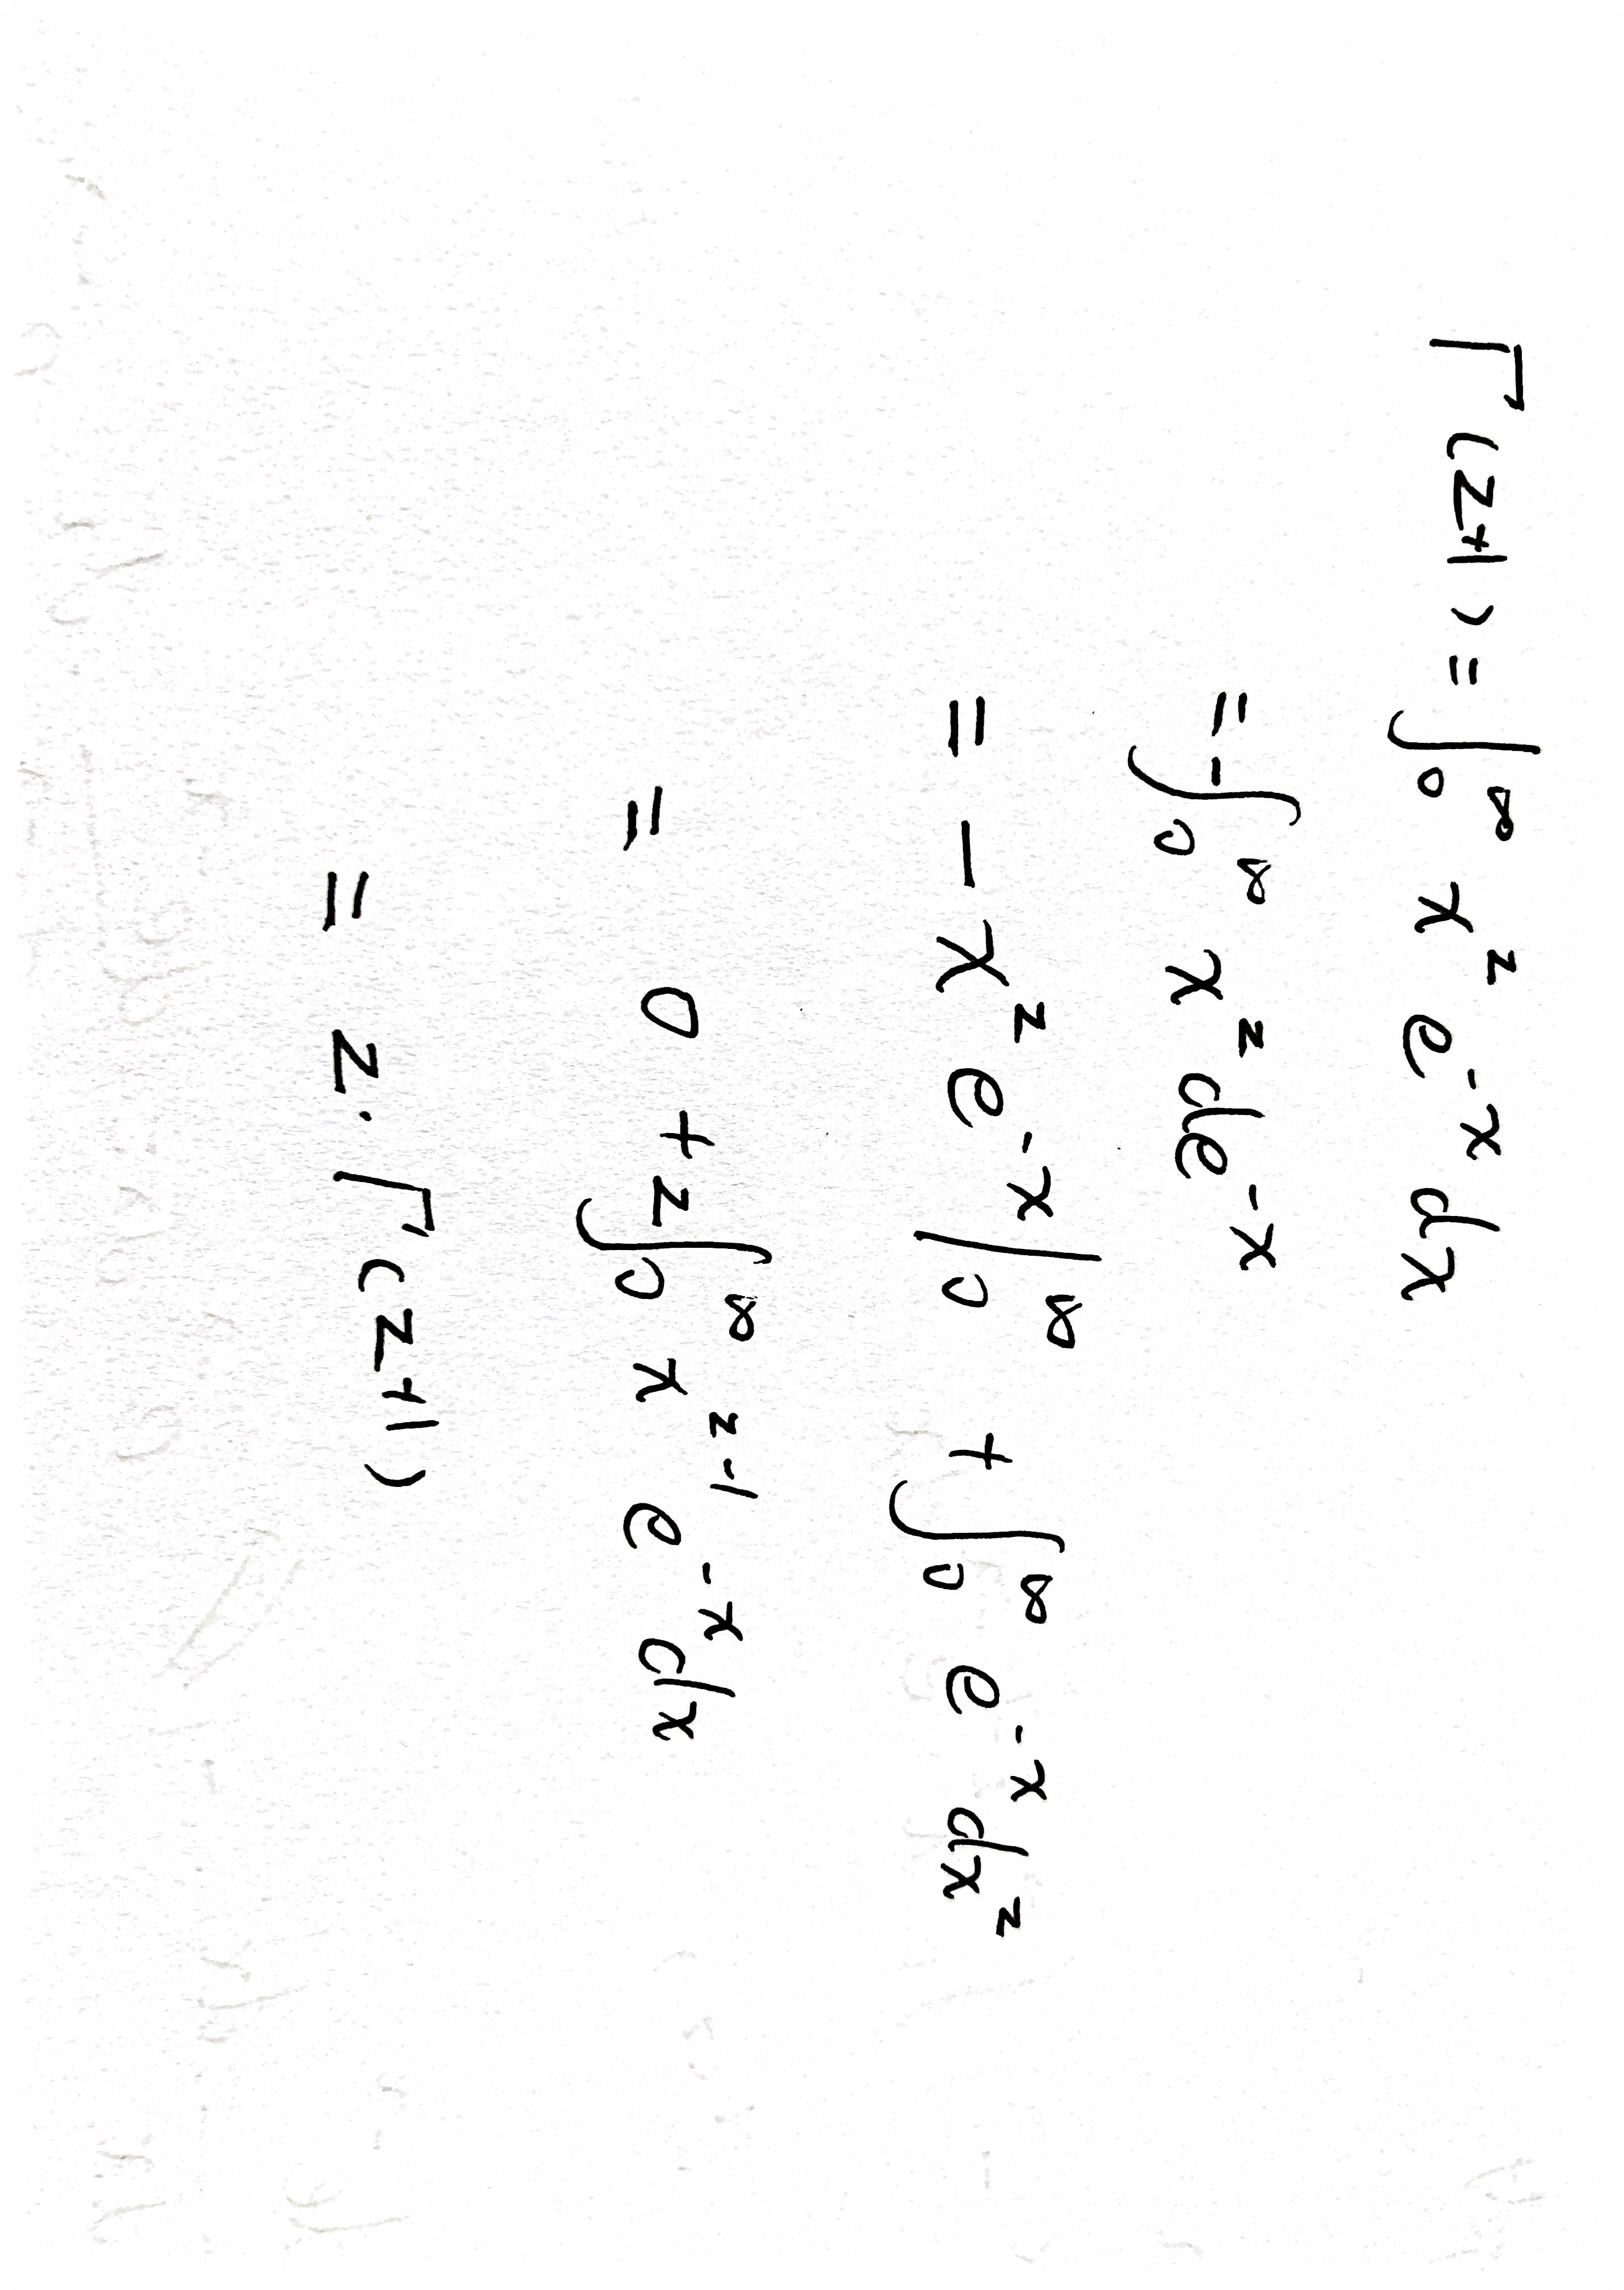 Γ(z+1) = ∫₀^∞ x^z e^{-x} dx
= -∫₀^∞ x^z de^{-x}
= - x^z e^{-x} |₀^∞ + ∫₀^∞ e^{-x} dx^z
= 0 + z ∫₀^∞ x^{z-1} e^{-x} dx
= z · Γ(z+1)